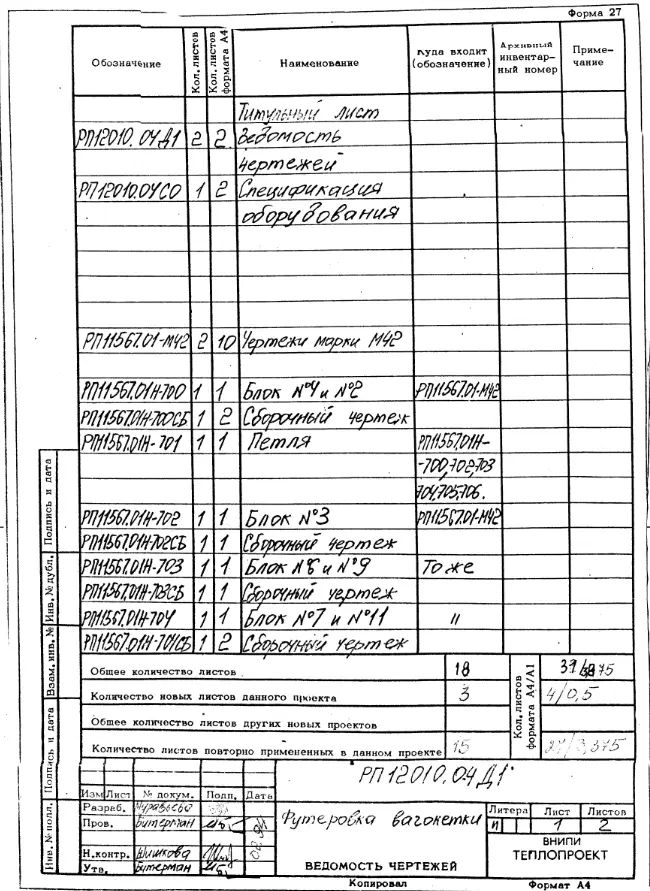 Форма 27
Обозначение Кол. листов Кол. листов формата А4 Наименование Куда входит (обозначение) Архивный инвентарный номер Примечание
Титульный лист
РП12010.04Д1 2 2 Ведомость
чертежей
РП12010.04СО 1 2 Спецификация
оборудования
РП11567.01-М42 2 10 Чертежи марки М42
РП11567.01Н-700 1 1 Блок №1 и №2 РП11567.01-М42
РП11567.01Н-700СБ 1 2 Сборочный чертеж
РП11567.01Н-701 1 1 Петля РП11567.01Н-
-700,702,703
704,705,706.
РП11567.01Н-702 1 1 Блок №3 РП11567.01-М42
РП11567.01Н-702СБ 1 1 Сборочный чертеж
РП11567.01Н-703 1 1 Блок №6 и №9 То же
РП11567.01Н-703СБ 1 1 Сборочный чертеж
РП11567.01Н-704 1 1 Блок №7 и №11 "
РП11567.01Н-704СБ 1 2 Сборочный чертеж
Общее количество листов 18
Количество новых листов данного проекта 3 4/0,5
Общее количество листов других новых проектов
Количество листов повторно примененных в данном проекте 15 27/3,375
Кол. листов формата А4/А1
РП12010.04Д1
Изм Лист № докум. Подп. Дата
Разраб.
Пров. Бутерман
Н.контр. Шишкова
Утв. Бутерман
02.94
Футеровка вагонетки
ВЕДОМОСТЬ ЧЕРТЕЖЕЙ
Литера Лист Листов
И 1 2
ВНИПИ
ТЕПЛОПРОЕКТ
Копировал Формат А4
Подпись и дата
Инв. № дубл.
Взам. инв. №
Подпись и дата
Инв. № подл.